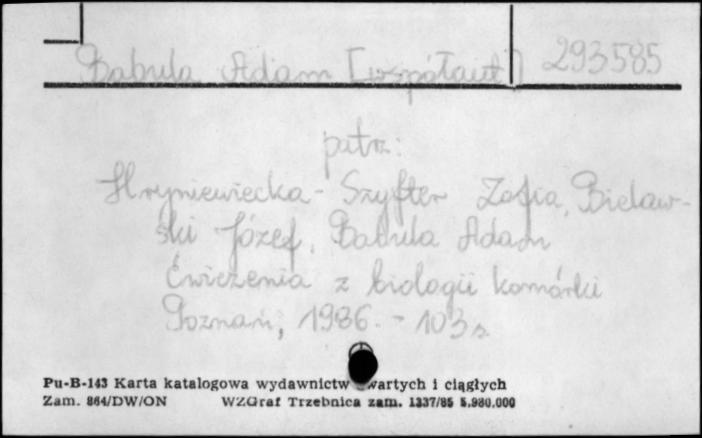 Babula Adam [współaut] 293585
patrz:
Hryniewiecka-Szyfter Zofia, Bielaw-
ski Józef, Babula Adam
Ćwiczenia z biologii komórki
Poznań, 1986. - 103 s.
Pu-B-143 Karta katalogowa wydawnictw zwartych i ciągłych
Zam. 864/DW/ON WZGraf Trzebnica zam. 1337/85 5.980.000